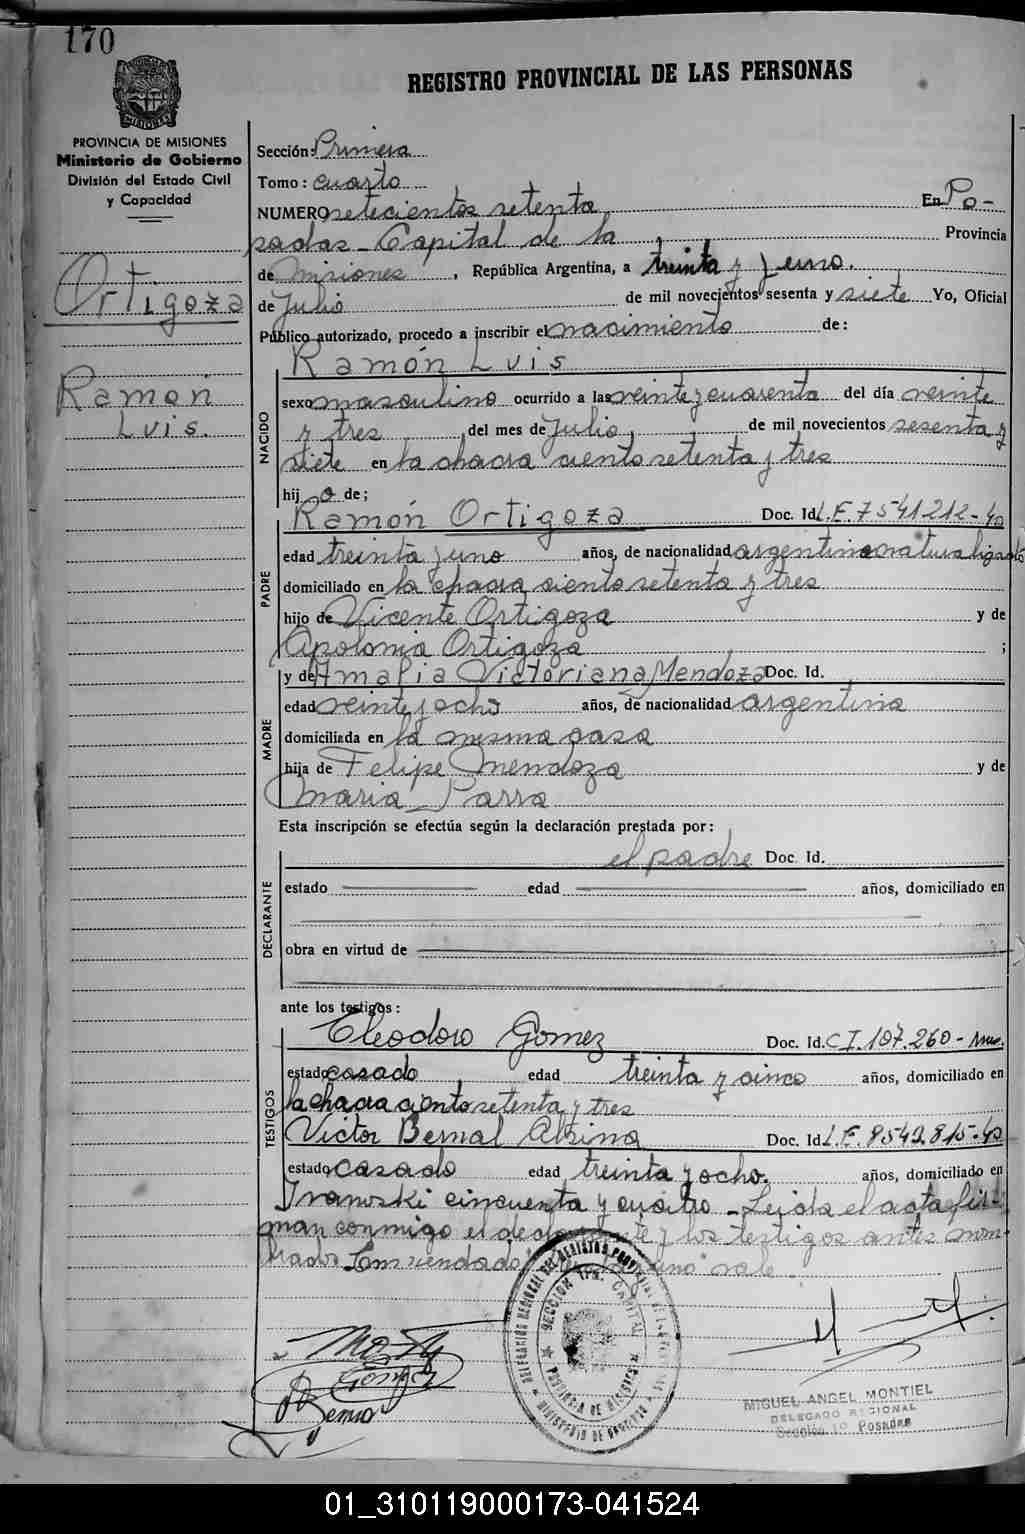 170
REGISTRO PROVINCIAL DE LAS PERSONAS
PROVINCIA DE MISIONES
Ministerio de Gobierno
División del Estado Civil
y Capacidad
Ortigoza
Ramón
Luis.
Sección: Primera
Tomo: cuarto
NUMERO setecientos setenta En Po-
sadas - Capital de la Provincia
de Misiones, República Argentina, a treinta y uno.
de Julio de mil novecientos sesenta y siete Yo, Oficial
Público autorizado, procedo a inscribir el nacimiento de:
Ramón Luis
NACIDO
sexo masculino ocurrido a las veinte y cuarenta del día veinte
y tres del mes de Julio, de mil novecientos sesenta y
siete en la chacra ciento setenta y tres
hij o de;
Ramón Ortigoza Doc. Id. L.E. 7541212-
PADRE
edad treinta y uno años, de nacionalidad argentino naturalizado
domiciliado en la chacra ciento setenta y tres
hijo de Vicente Ortigoza y de
Apolonia Ortigoza ;
y de Amalia Victoriana Mendoza Doc. Id.
MADRE
edad veinte y ocho años, de nacionalidad argentina
domiciliada en la misma casa
hija de Felipe Mendoza y de
Maria Parra
Esta inscripción se efectúa según la declaración prestada por:
el padre Doc. Id.
DECLARANTE
estado edad años, domiciliado en
obra en virtud de
ante los testigos:
Eleodoro Gomez Doc. Id. C.I. 107.260-
TESTIGOS
estado casado edad treinta y cinco años, domiciliado en
la chacra ciento setenta y tres
Victor Bernal Alsina Doc. Id. L.E. 8542.815-
estado casado edad treinta y ocho. años, domiciliado en
Ivanoski cincuenta y cuatro - Leida el acta fir-
man conmigo el declarante y los testigos antes nom-
brados Enmendado uno vale
DELEGACIÓN REGIONAL DEL REGISTRO PROVINCIAL DE LAS PERSONAS
SECCION 1ra. CAPITAL
PROVINCIA DE MISIONES
MINISTERIO DE GOBIERNO
MIGUEL ANGEL MONTIEL
DELEGADO REGIONAL
Sección 1a Posadas
01_310119000173-041524